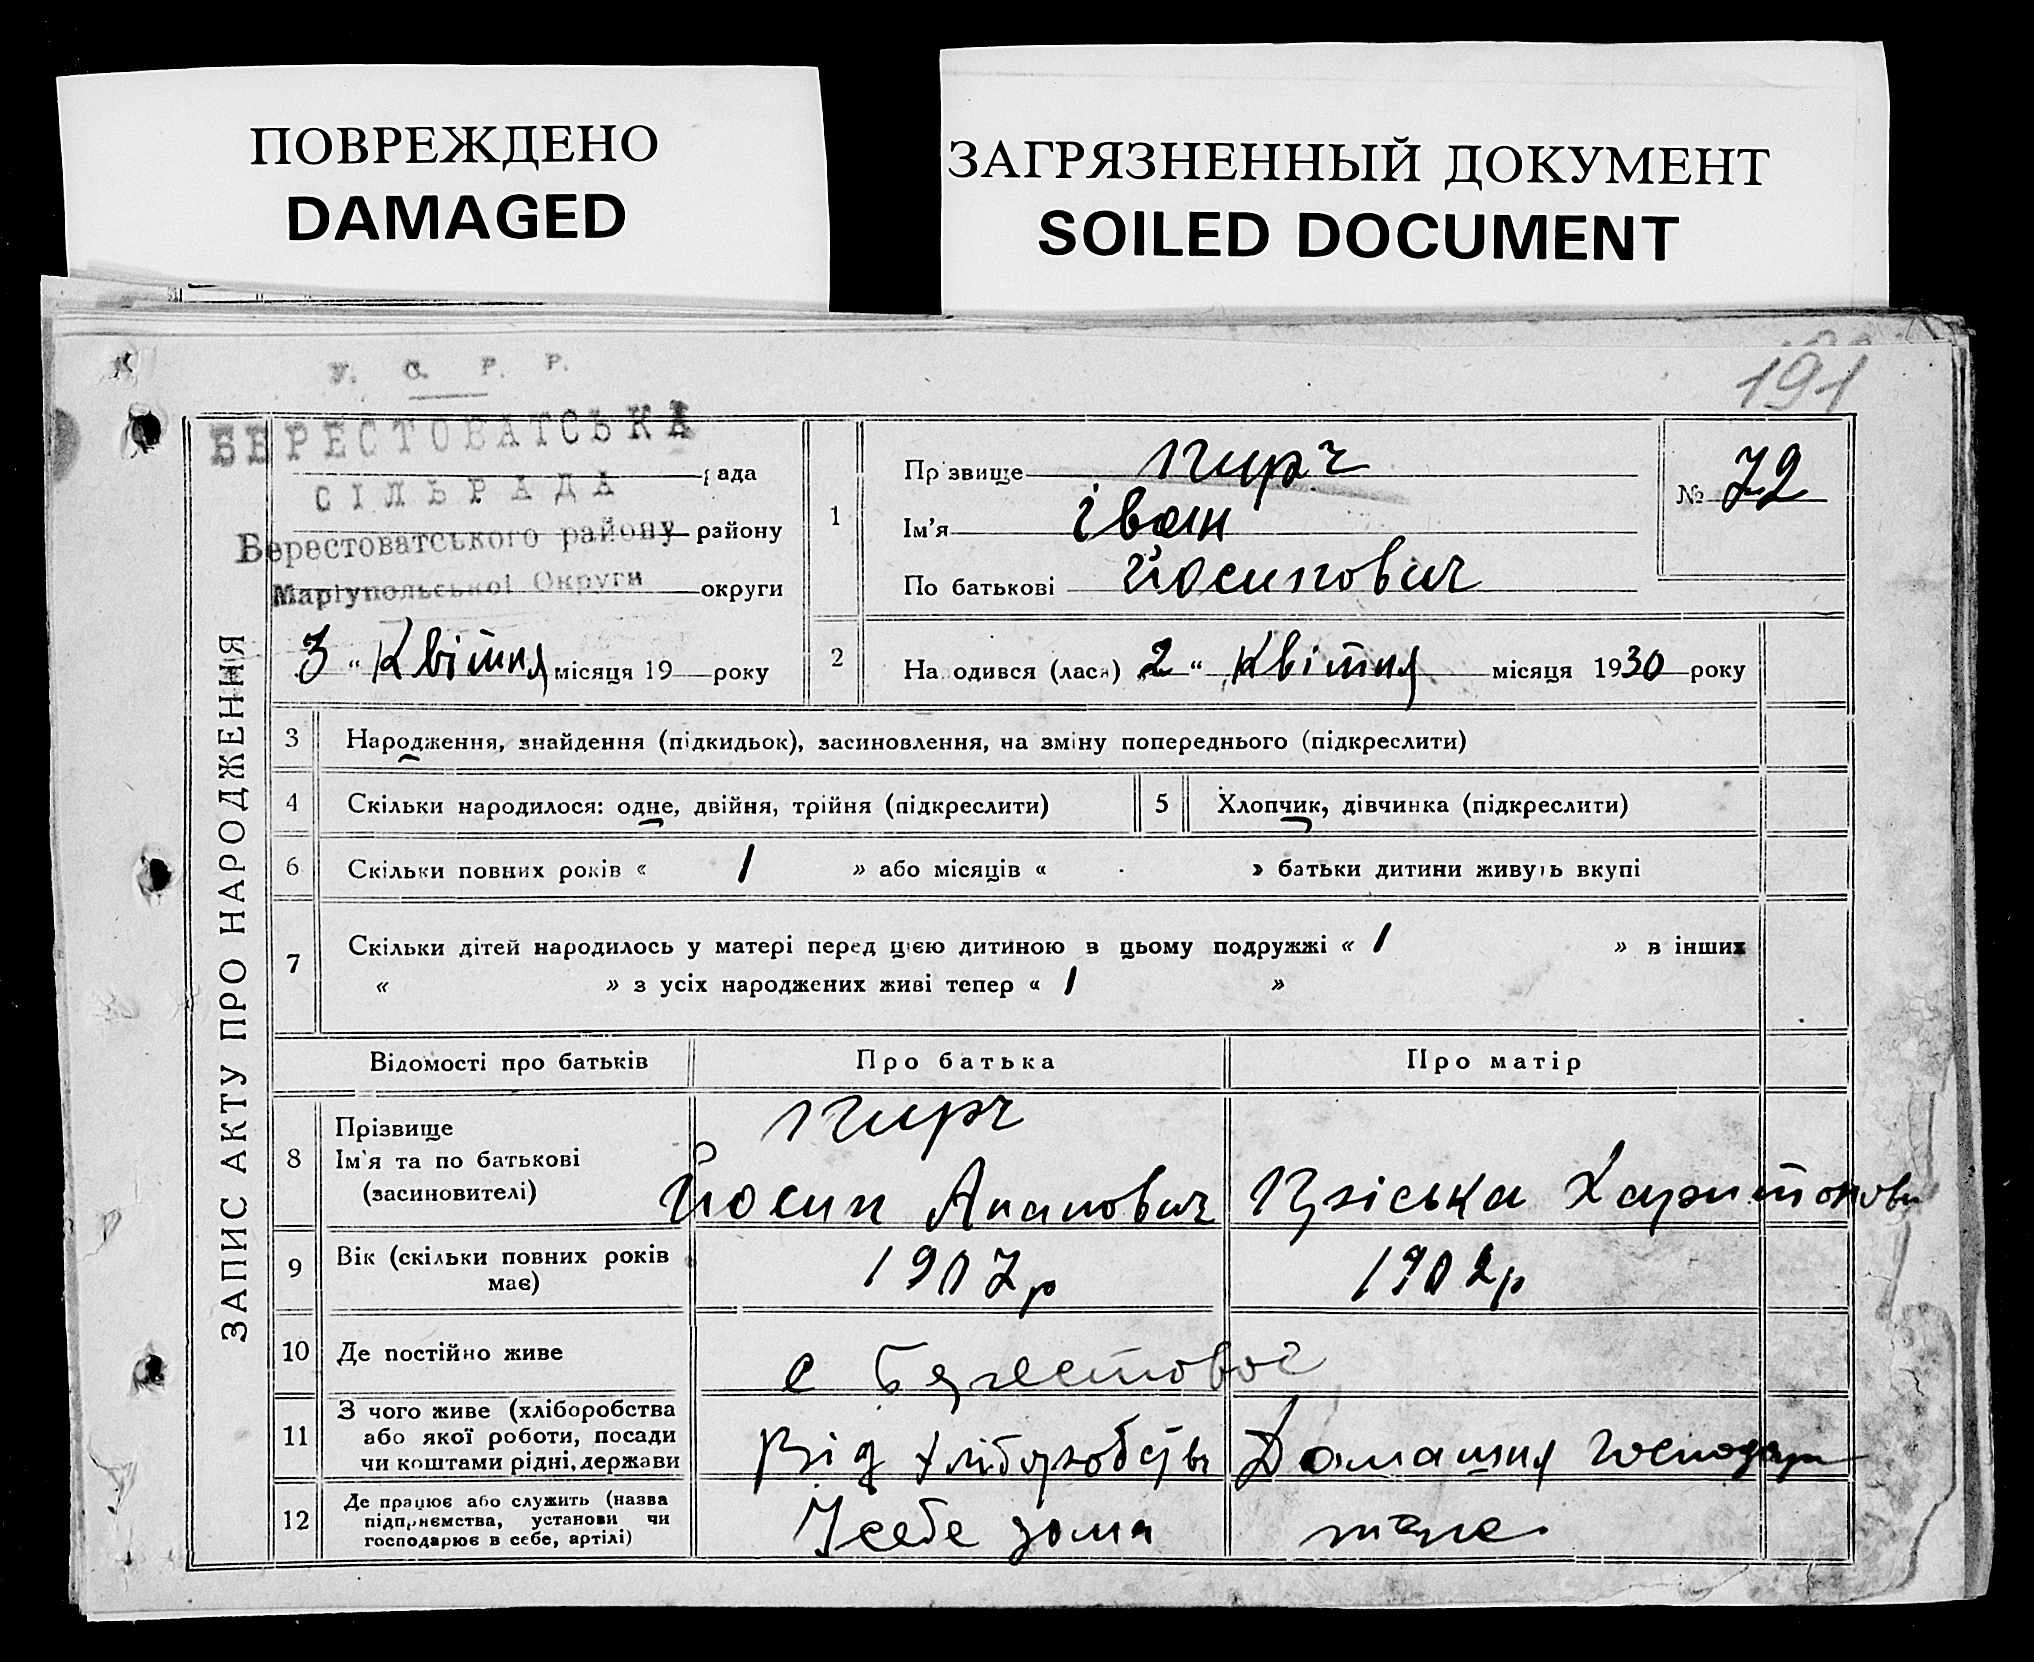 ПОВРЕЖДЕНО
DAMAGED
ЗАГРЯЗНЕННЫЙ ДОКУМЕНТ
SOILED DOCUMENT
191
У. С. Р. Р.
БЕРЕСТОВАТСЬКА
рада
СІЛЬРАДА
Берестоватського району району
Маріупольської Округи округи
3 " Квітня місяця 19 року
ЗАПИС АКТУ ПРО НАРОДЖЕННЯ
1
Прізвище Пирч
Ім'я Іван
По батькові Йосипович
№ 72
2 Народився (лася) „2 " Квітня місяця 1930 року
3 Народження, знайдення (підкидьок), засиновлення, на зміну попереднього (підкреслити)
4 Скільки народилося: одне, двійня, трійня (підкреслити) 5 Хлопчик, дівчинка (підкреслити)
6 Скільки повних років « 1 » або місяців « » батьки дитини живуть вкупі
7 Скільки дітей народилось у матері перед цією дитиною в цьому подружжі « 1 » в інших
« » з усіх народжених живі тепер « 1 »
Відомості про батьків Про батька Про матір
8 Прізвище
Ім'я та по батькові
(засиновителі)
Пирч
Йосип Панович
Харитонов
9 Вік (скільки повних років
має)
1907р 1902р
10 Де постійно живе с Берестовое
11 З чого живе (хліборобства
або якої роботи, посади
чи коштами рідні, держави
Від хліборобств Домашня господар
12 Де працює або служить (назва
підприємства, установи чи
господарює в себе, артілі)
У себе дома теже